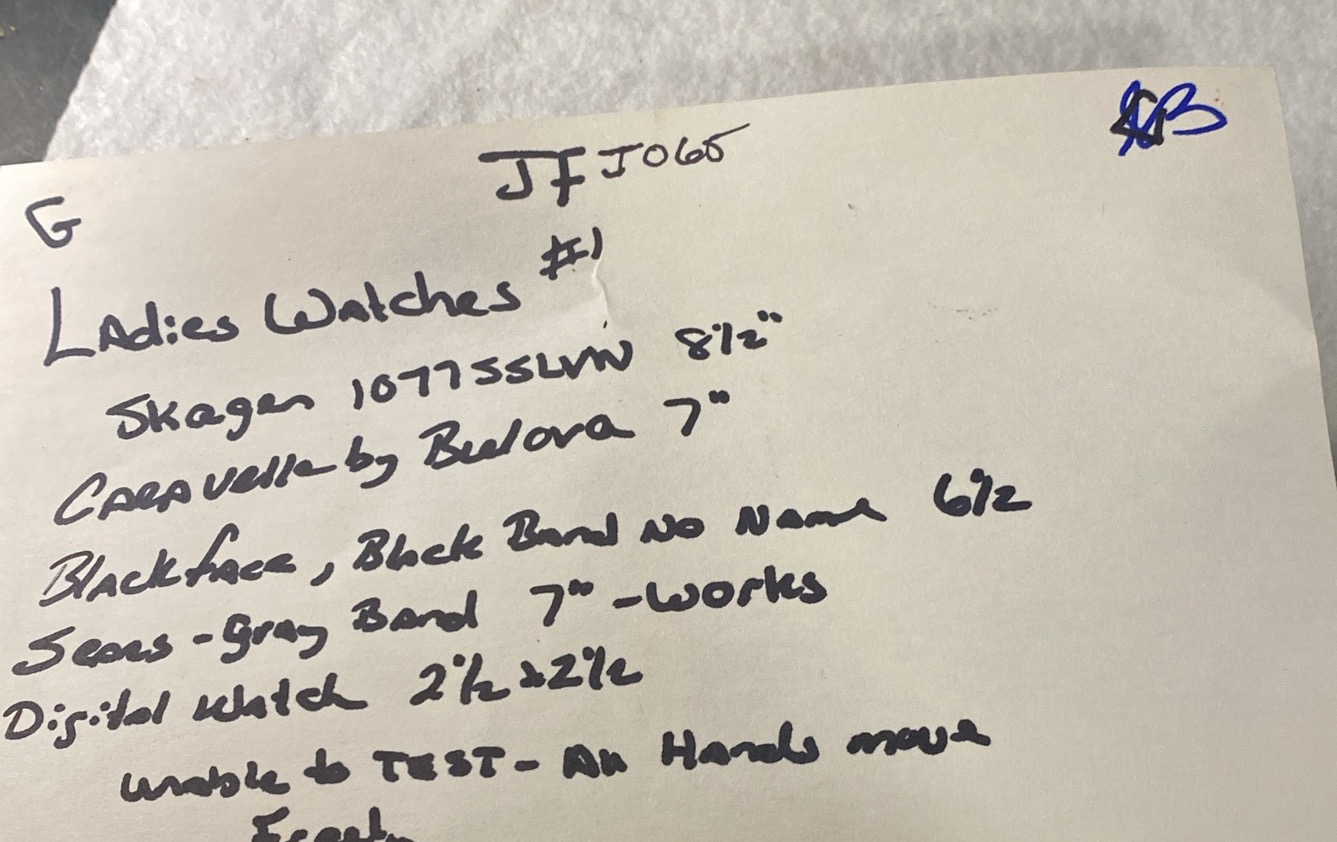 JFJ065
G
Ladies Watches #1
Skagen 1077SSLVN 8 1/2"
Caravelle by Bulova 7"
Blackface, Black Band No Name 6 1/2
Sears - Gray Band 7" - works
Digital Watch 2 1/2 x 2 1/2
unable to TEST - All Hands move
Freely